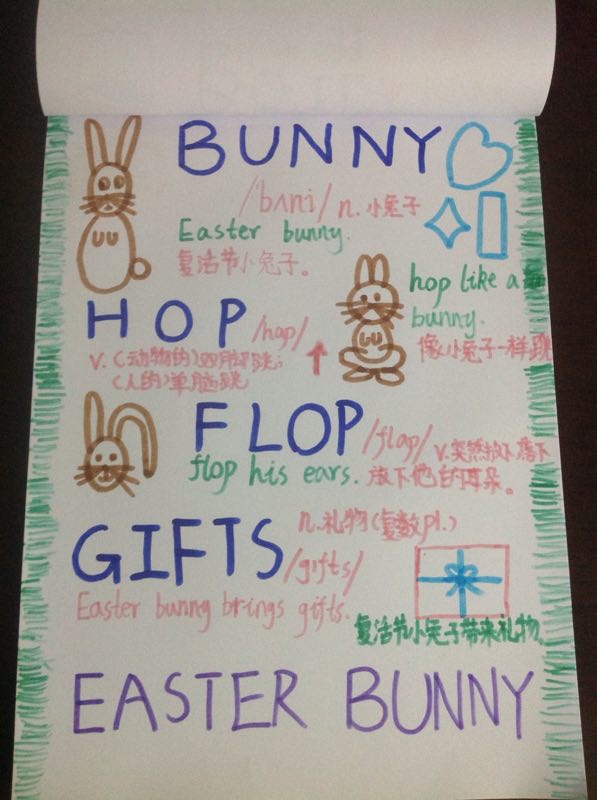 BUNNY
/bʌni/ n. 小兔子
Easter bunny.
复活节小兔子。
hop like a
bunny.
像小兔子一样跳
HOP /hɒp/
v. (动物的)四脚跳;
(人的)单脚跳
FLOP /flɒp/ v. 突然放下 落下
flop his ears. 放下他的耳朵。
GIFTS /gifts/
n. 礼物(复数pl.)
Easter bunny brings gifts.
复活节小兔子带来礼物。
EASTER BUNNY